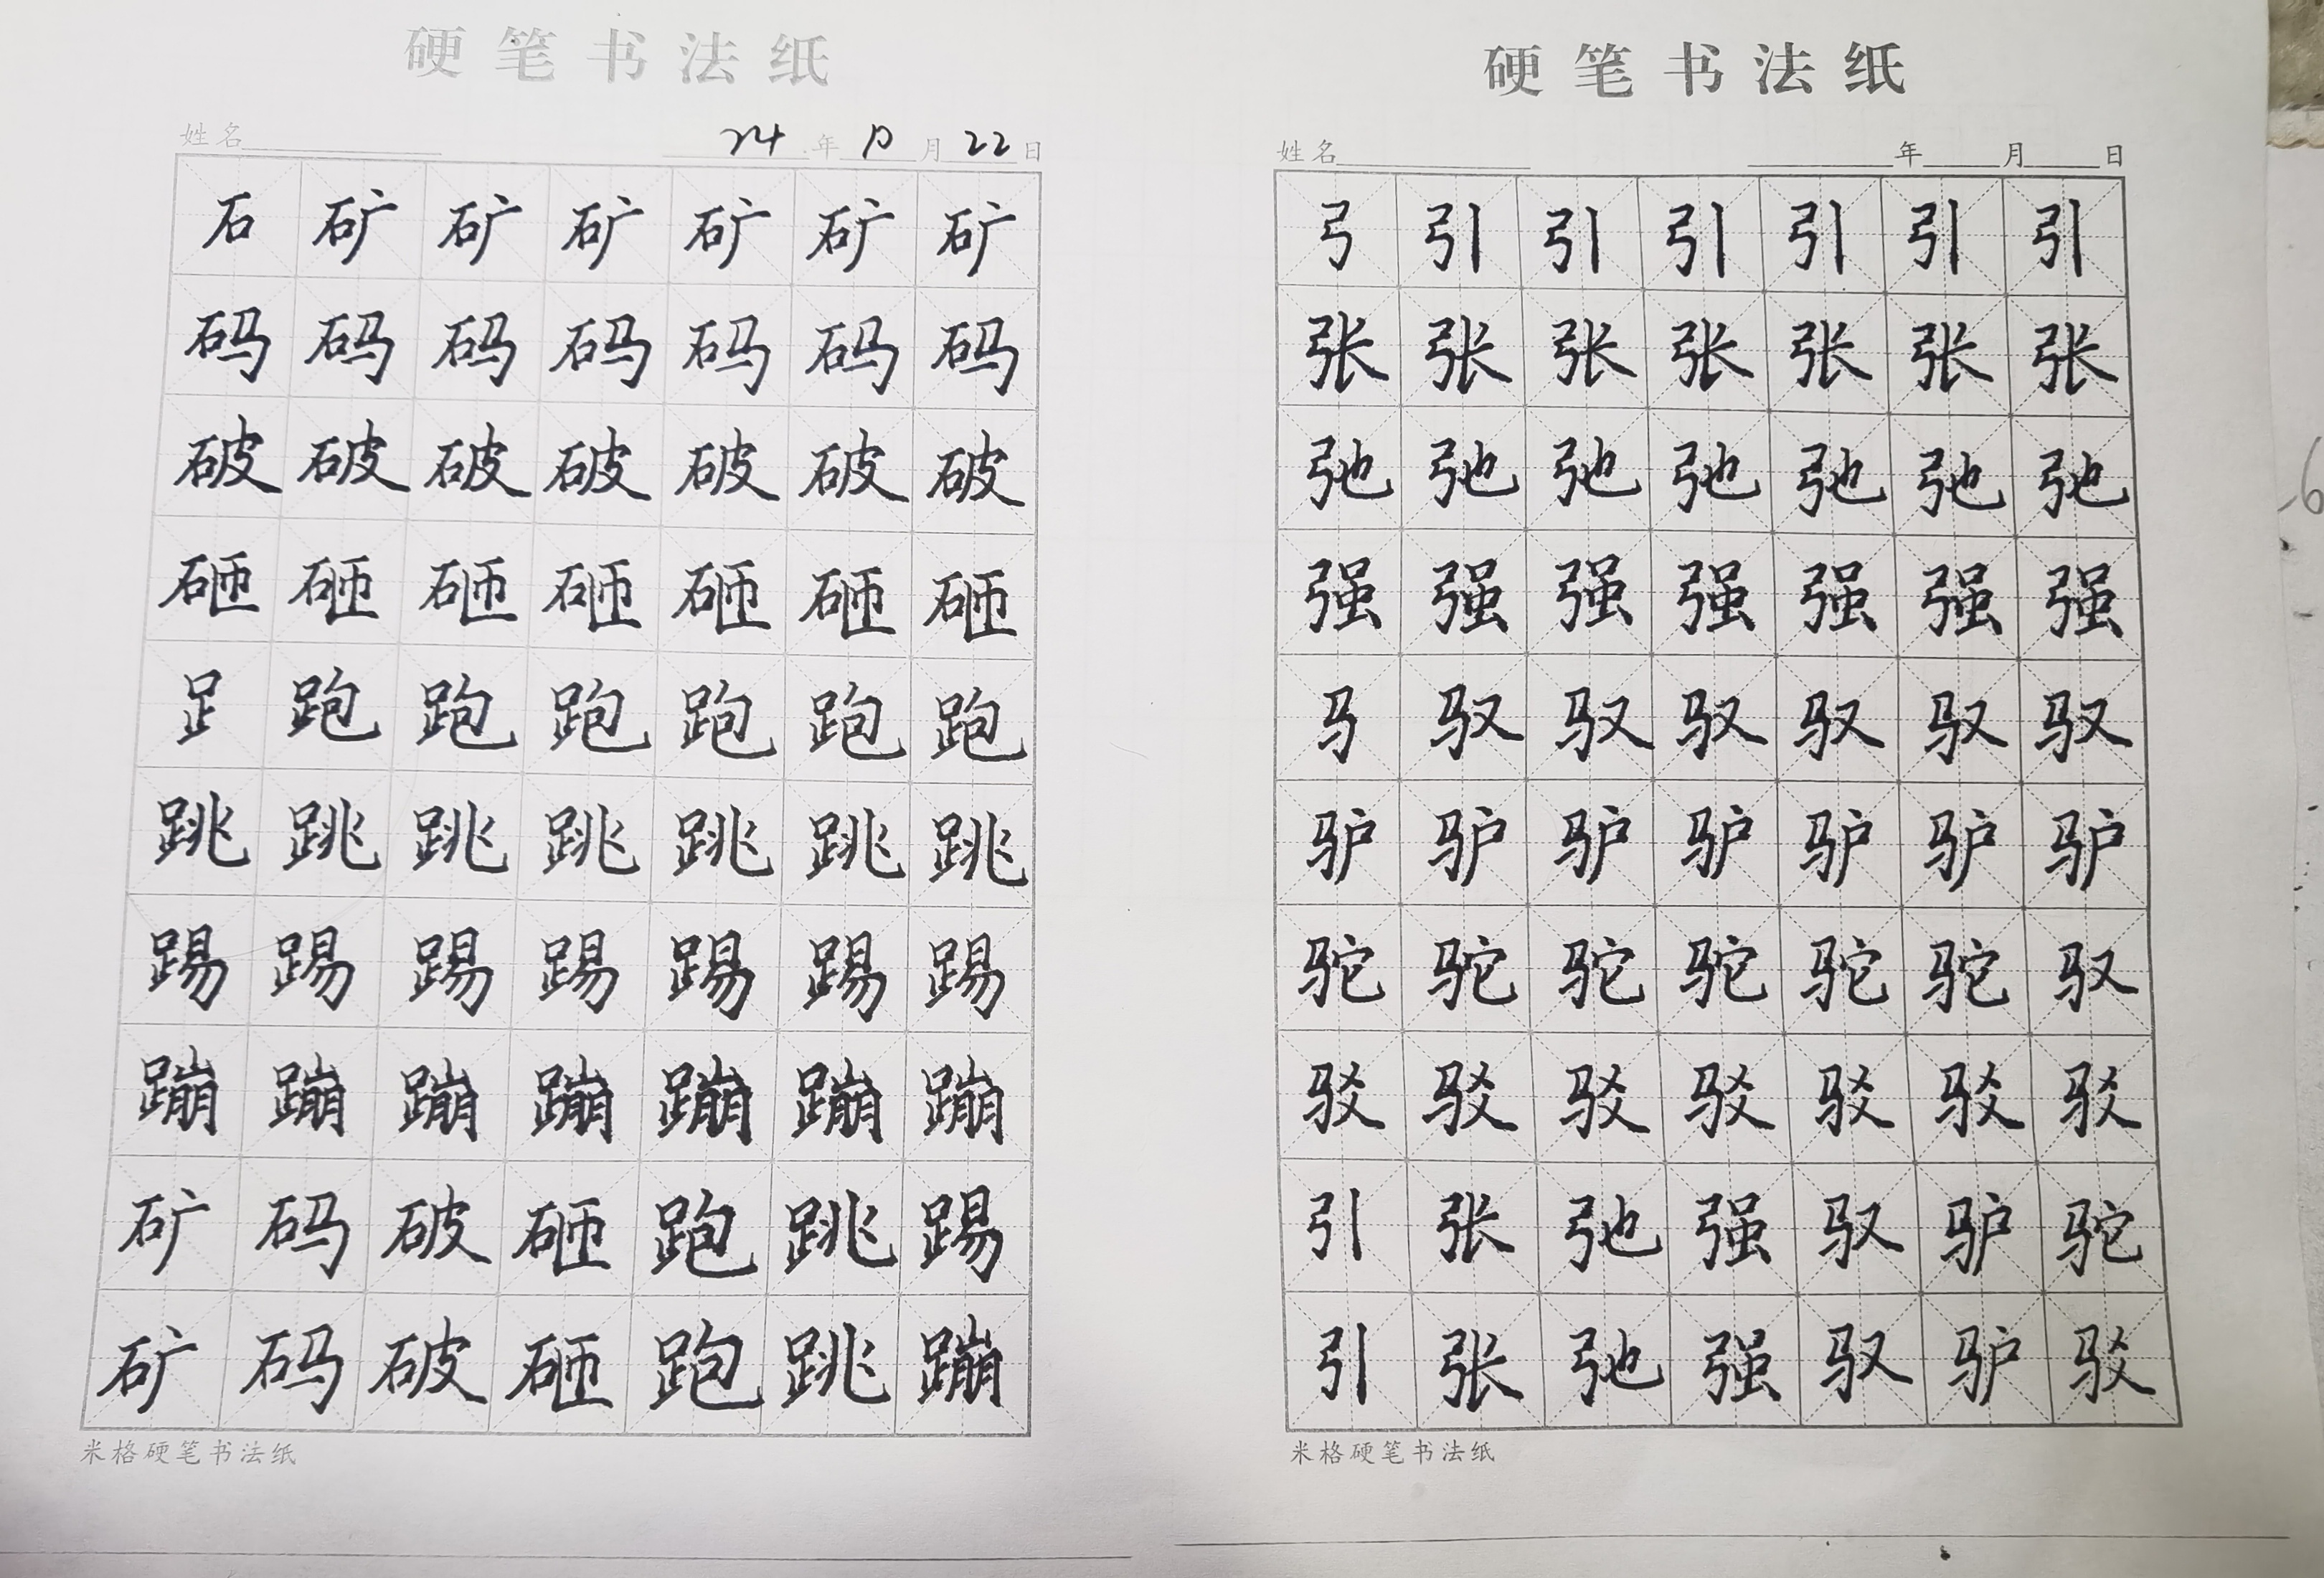 硬笔书法纸
姓名 24年月22日
石矿矿矿矿矿矿
码码码码码码码
破破破破破破破
砸砸砸砸砸砸砸
𧾷跑跑跑跑跑跑
跳跳跳跳跳跳跳
踢踢踢踢踢踢踢
蹦蹦蹦蹦蹦蹦蹦
矿码破砸跑跳踢
矿码破砸跑跳蹦
米格硬笔书法纸
硬笔书法纸
姓名 年月日
弓引引引引引引
张张张张张张张
弛弛弛弛弛弛弛
强强强强强强强
马驭驭驭驭驭驭
驴驴驴驴驴驴驴
驼驼驼驼驼驼驭
驳驳驳驳驳驳驳
引张弛强驭驴驼
引张弛强驭驴驳
米格硬笔书法纸